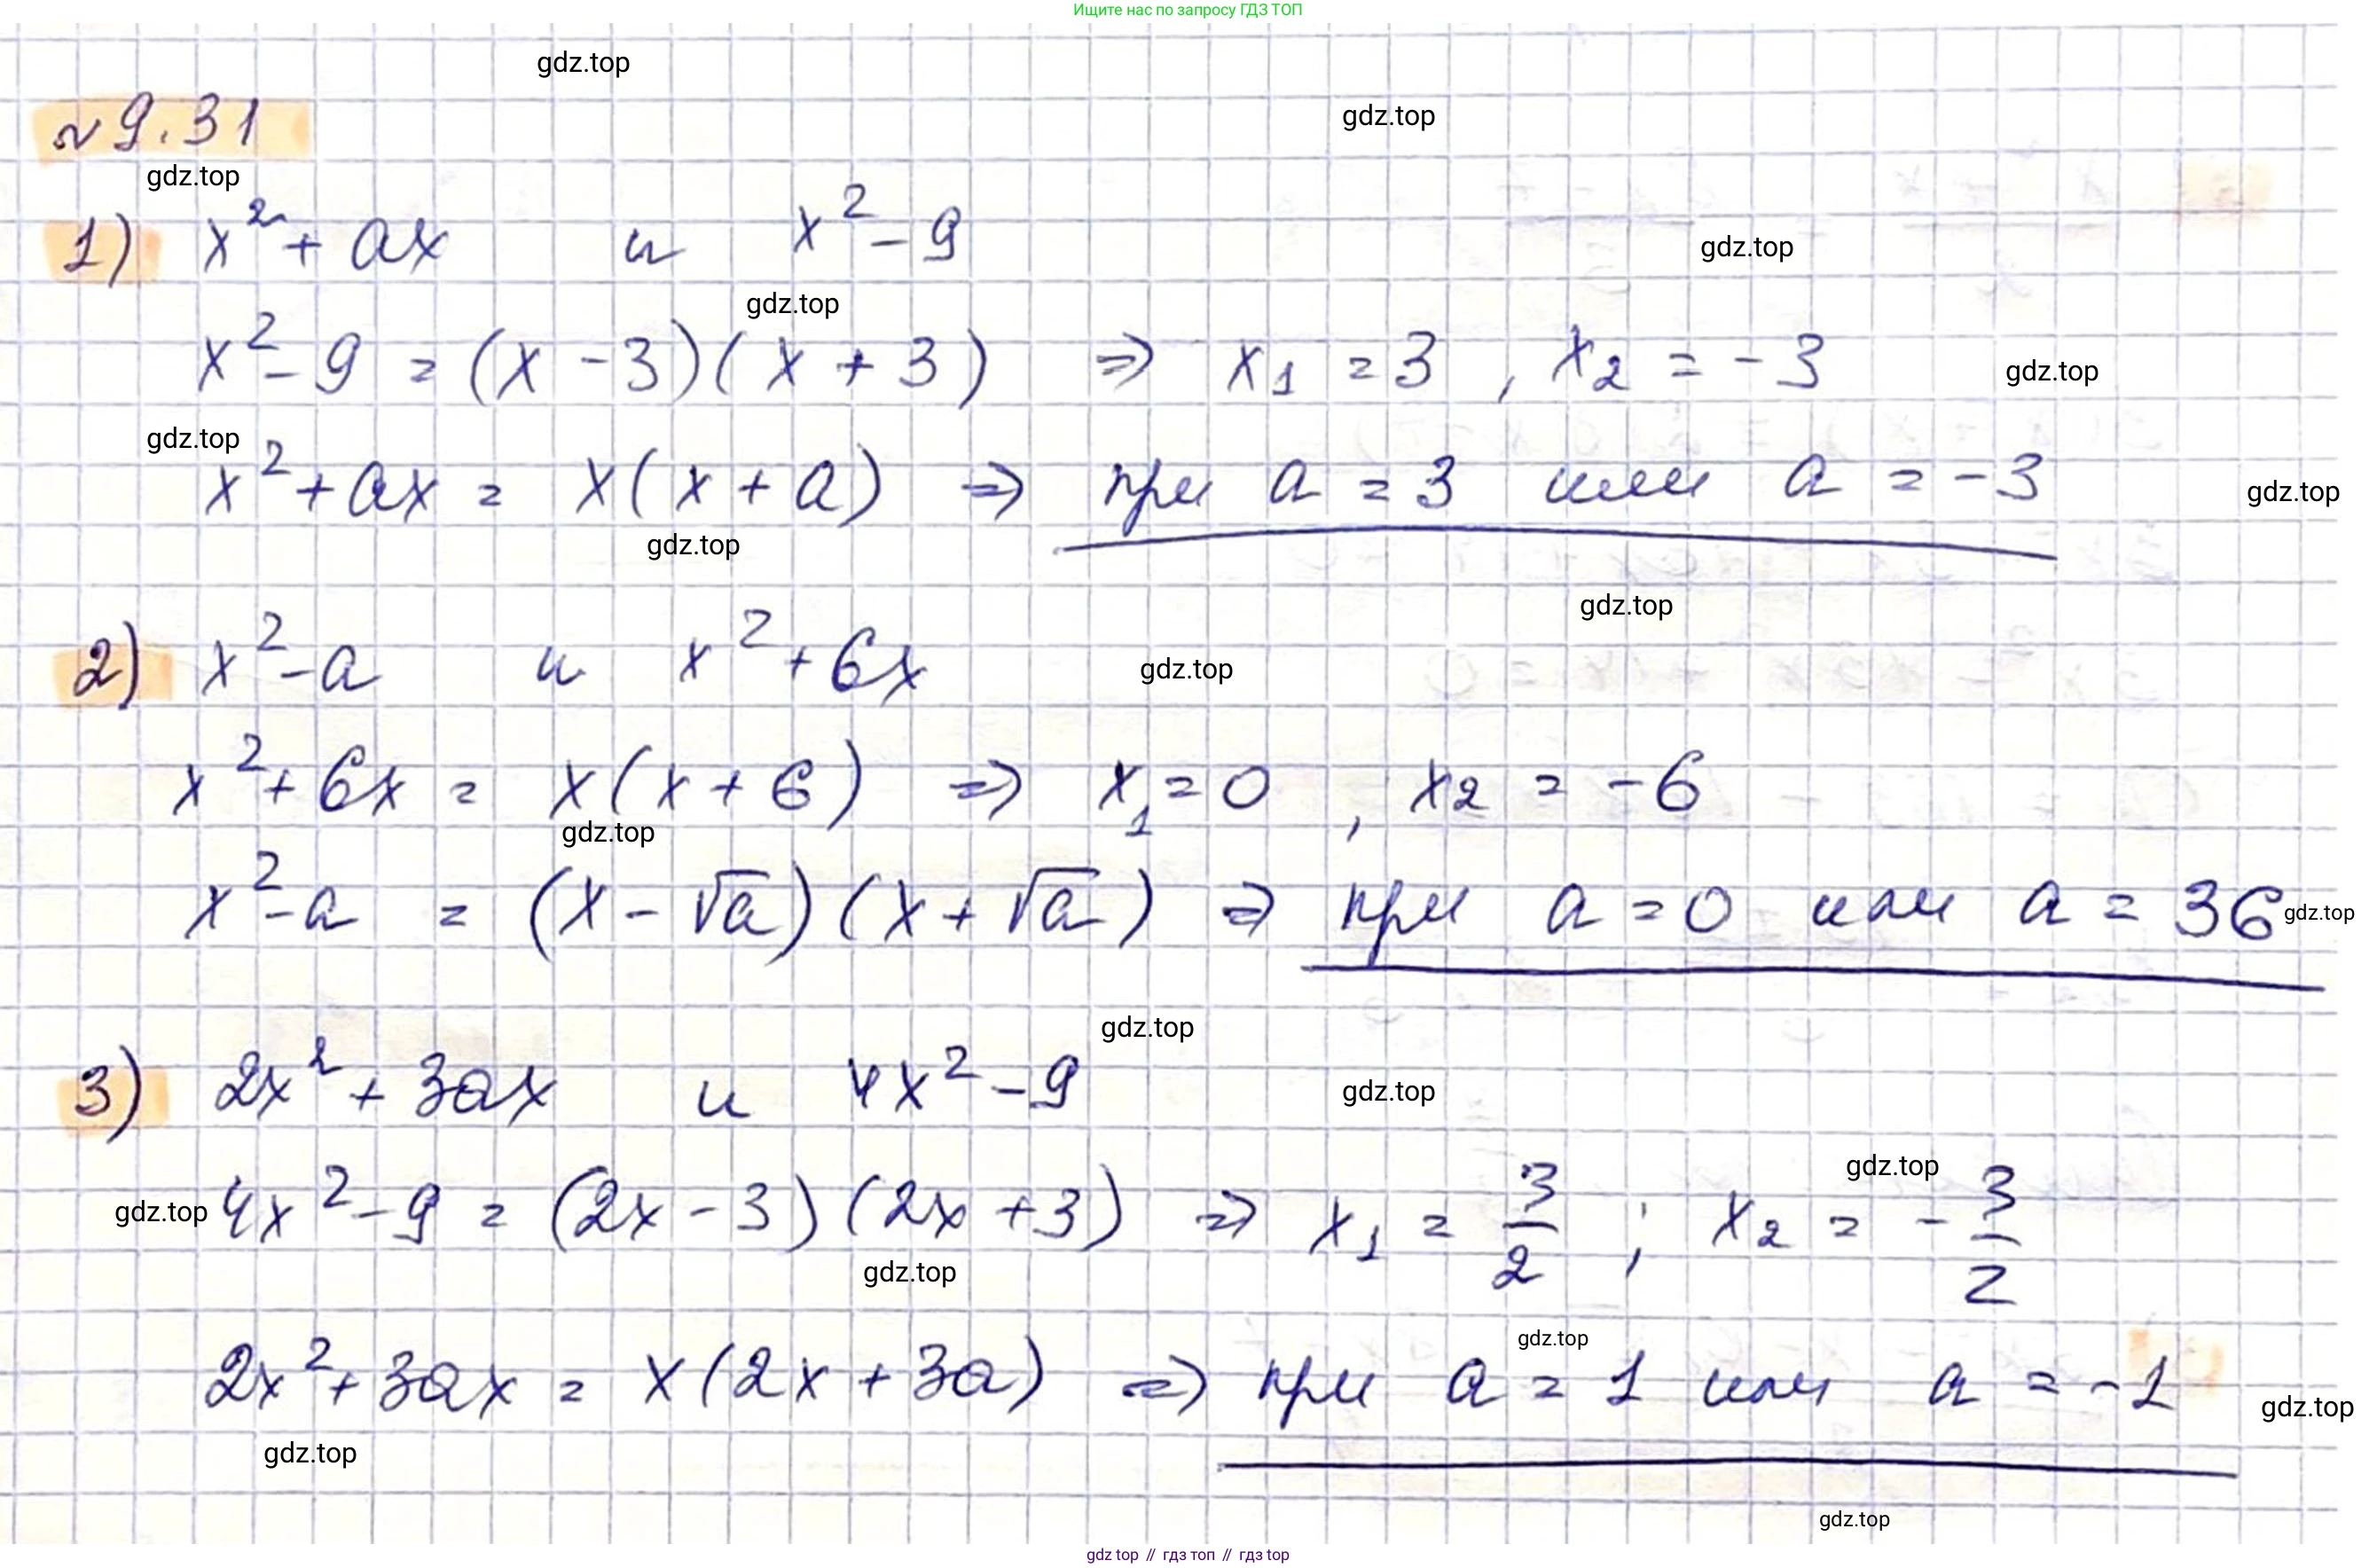 Ищите нас по запросу ГДЗ ТОП
gdz.top
gdz.top
№ 9.31
gdz.top
1) x² + ax и x² - 9
gdz.top
gdz.top
x² - 9 = (x - 3)(x + 3) => x₁ = 3, x₂ = -3
gdz.top
gdz.top
x² + ax = x(x + a) => при a = 3 или a = -3
gdz.top
gdz.top
gdz.top
2) x² - a и x² + 6x
gdz.top
x² + 6x = x(x + 6) => x₁ = 0, x₂ = -6
gdz.top
x² - a = (x - √a)(x + √a) => при a = 0 или a = 36
gdz.top
gdz.top
3) 2x² + 3ax и 4x² - 9
gdz.top
gdz.top
gdz.top
4x² - 9 = (2x - 3)(2x + 3) => x₁ = 3/2; x₂ = -3/2
gdz.top
gdz.top
2x² + 3ax = x(2x + 3a) => при a = 1 или a = -1
gdz.top
gdz.top
gdz.top
gdz top // гдз топ // гдз top